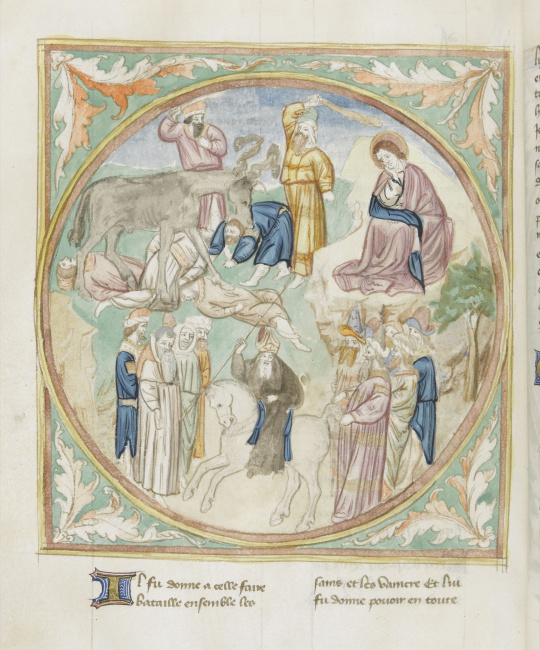 Il fu donne a celle faire
bataille ensemble les
sains. et les vaincre Et lui
fu donne pouoir en toute